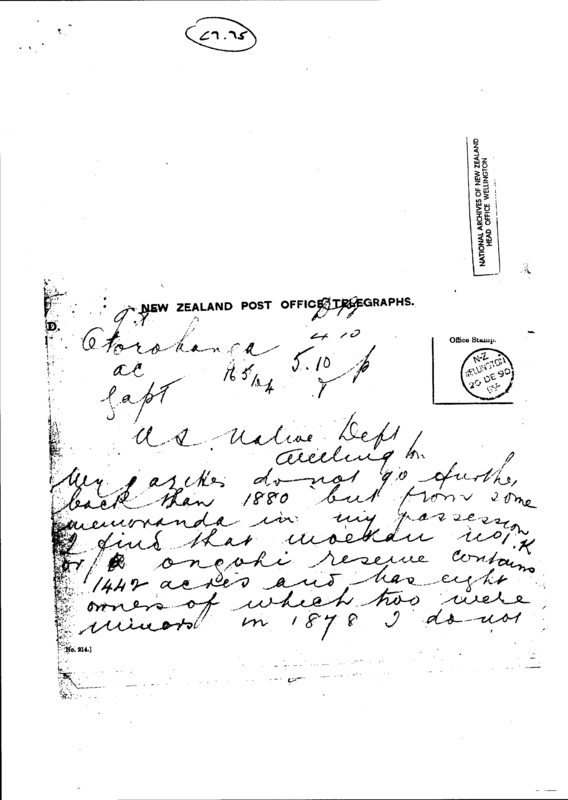 C7.75
NATIONAL ARCHIVES OF NEW ZEALAND
HEAD OFFICE WELLINGTON
NEW ZEALAND POST OFFICE TELEGRAPHS.
D.
Otorohanga 4 10
ac 5.10 p
Gapt
Office Stamp.
N-Z
WELLINGTON
20 DE 90
US. Native Dept
Wellington
My do not go further
back than 1880 but from some
memoranda in my possession
I find that no1.K
or ongohi reserve contains
1442 acres and has eight
owners of which two were
minors in 1878 I do not
No. 214.]